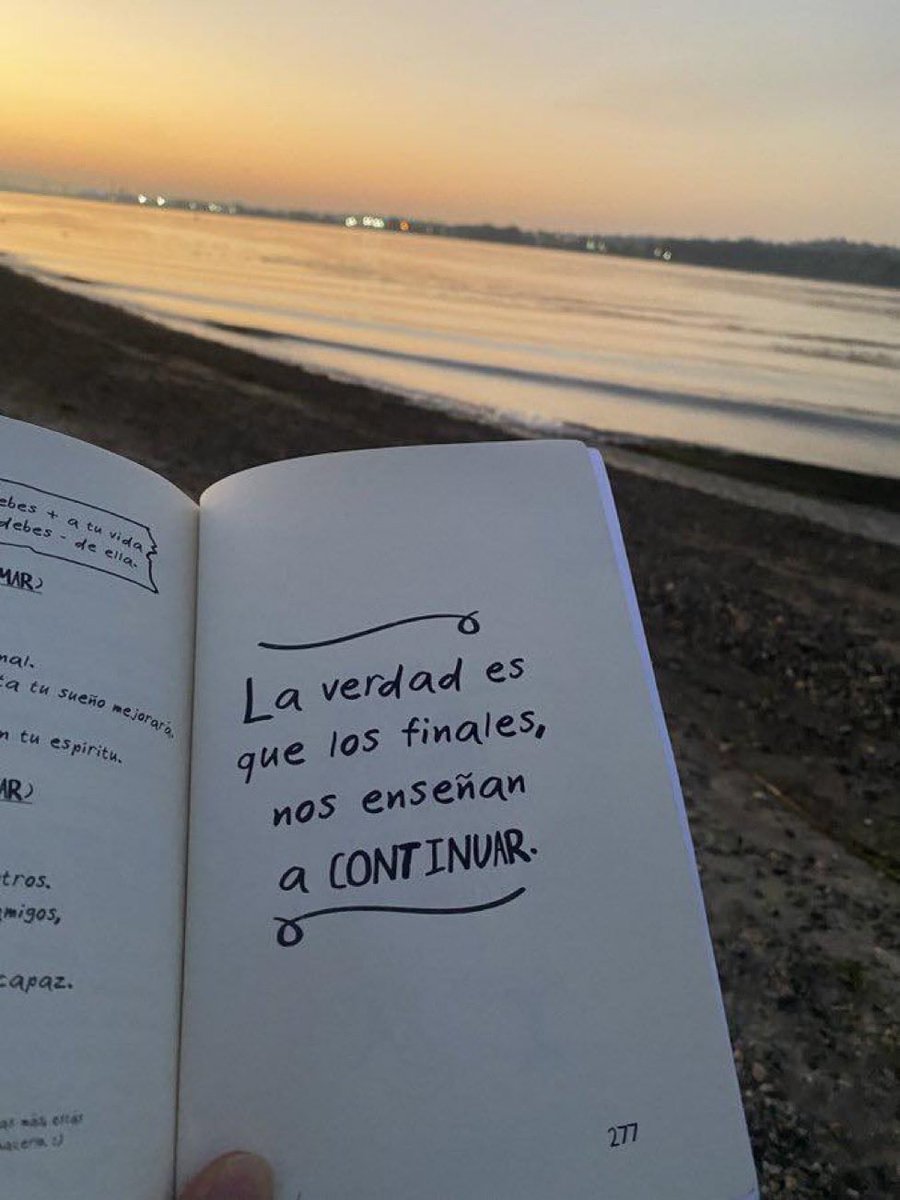 ebes + a tu vida
debes - de ella.
MAR)
mal.
ta tu sueño mejorará.
n tu espiritu.
AR)
tros.
amigos,
capaz.
más
:)
La verdad es
que los finales,
nos enseñan
a CONTINUAR.
277